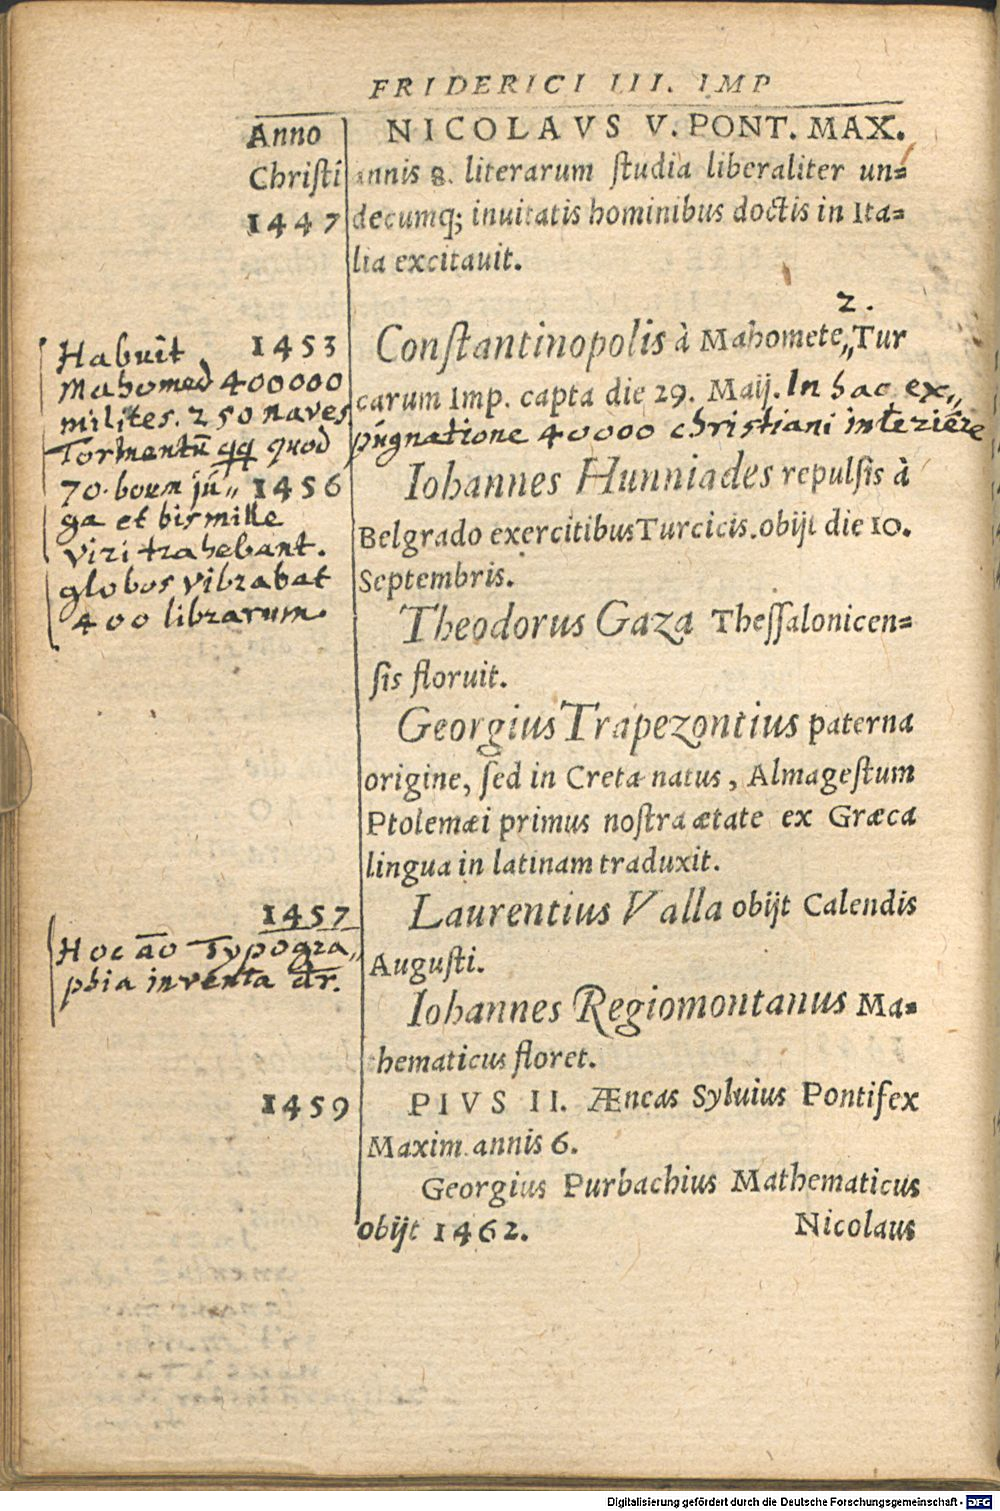 FRIDERICI III. IMP
Anno
Christi
1447
NICOLAVS V. PONT. MAX.
annis 8. literarum ſtudia liberaliter un⸗
decumq; inuitatis hominibus doctis in Ita⸗
lia excitauit.
2.
1453
Conſtantinopolis à Mahomete,, Tur
carum Imp. capta die 29. Maij. In hac ex,,
pugnatione 40000 christiani interiēre
Habuit
Mahomed 400000
milites. 250 naves
Tormentū qq quod
70. boum jū,,
ga et bis mille
viri trahebant.
globos vibrabat
400 librarum.
1456
Iohannes Hunniades repulſis à
Belgrado exercitibus Turcicis. obijt die 10.
Septembris.
Theodorus Gaza Theſſalonicen⸗
ſis floruit.
Georgius Trapezontius paterna
origine, ſed in Creta natus, Almageſtum
Ptolemæi primus noſtra ætate ex Græca
lingua in latinam traduxit.
1457
Laurentius Valla obijt Calendis
Auguſti.
Hoc āo Typogra,,
phia inventa dr.
Iohannes Regiomontanus Ma⸗
thematicus floret.
1459
PIVS II. Æneas Syluius Pontifex
Maxim. annis 6.
Georgius Purbachius Mathematicus
obijt 1462.
Nicolaus
Digitalisierung gefördert durch die Deutsche Forschungsgemeinschaft - DFG